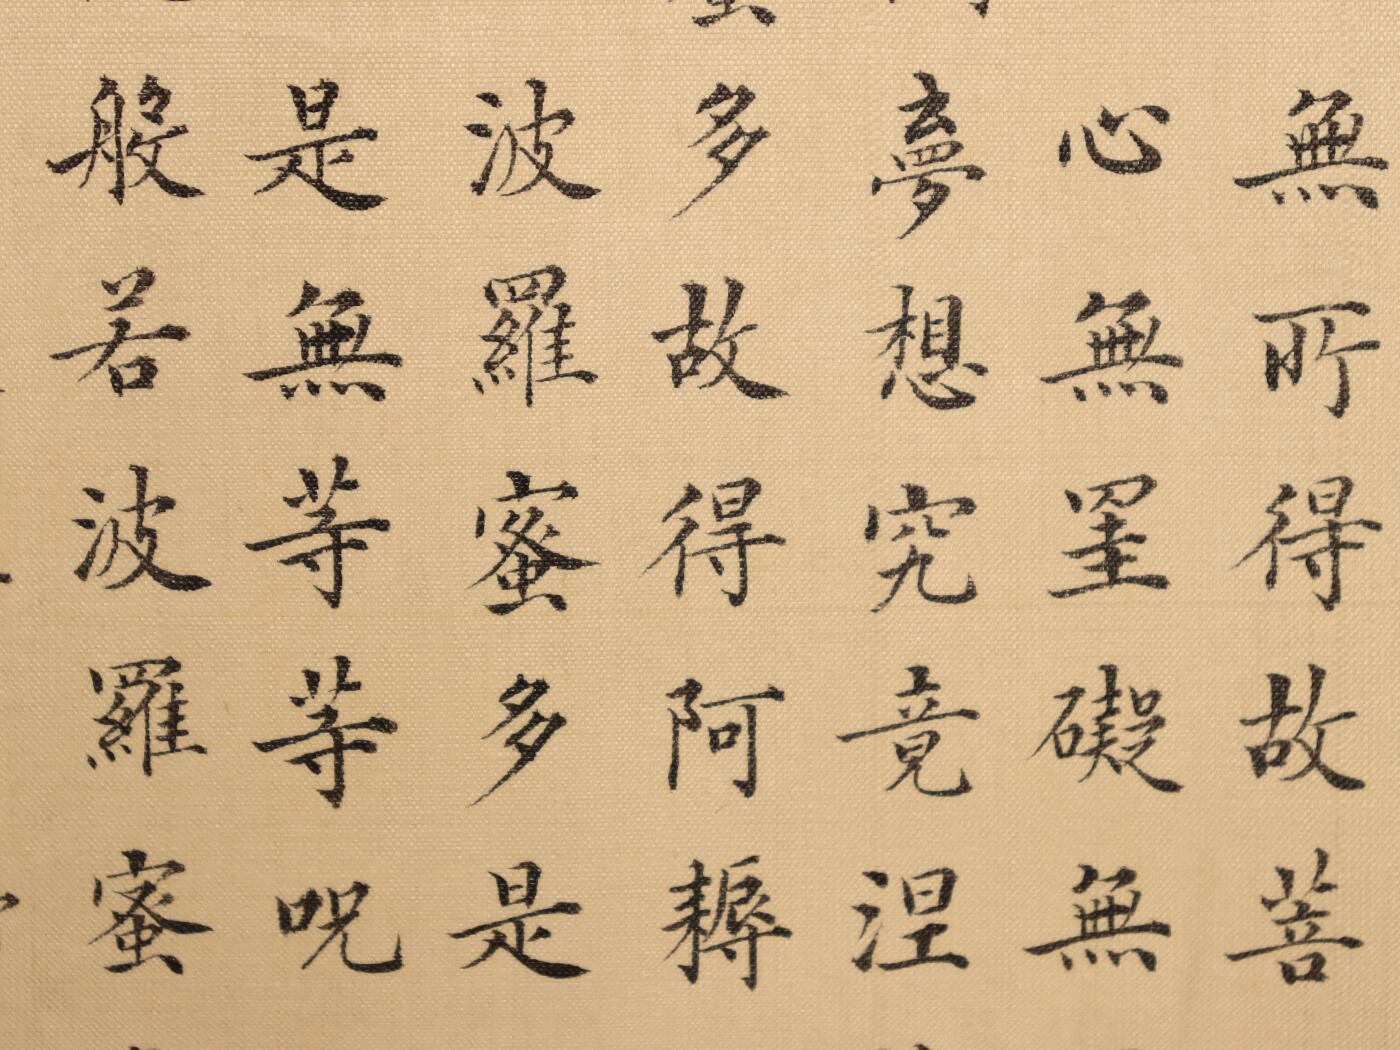 無所得故菩
心無罣礙無
夢想究竟涅
多故得阿耨
波羅蜜多是
是無等等呪
般若波羅蜜